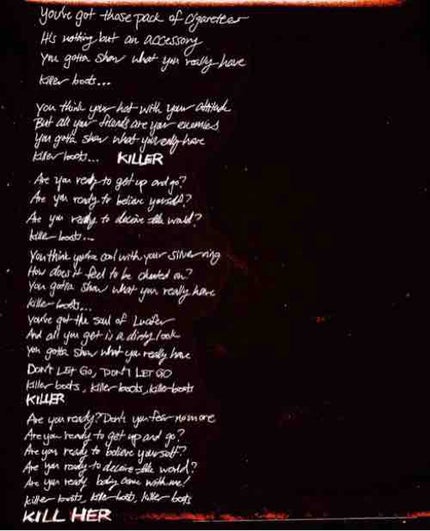 You've got those pack of cigarettes
It's nothing but an accessory
You gotta show what you really have
Killer boots...
You think your hot with your attitude
But all your friends are your enemies
You gotta show what you really have
Killer boots... KILLER
Are you ready to get up and go?
Are you ready to believe yourself?
Are you ready to deceive the world?
Killer boots...
You think you're cool with your silver ring
How does it feel to be cheated on?
You gotta show what you really have
Killer boots...
You've got the soul of Lucifer
And all you get is a dirty look
You gotta show what you really have
DON'T LET GO, DON'T LET GO
Killer boots, killer boots, killer boots
KILLER
Are you ready? Don't you fear no more
Are you ready to get up and go?
Are you ready to believe yourself?
Are you ready to deceive the world?
Are you ready baby come with me!
Killer boots, killer boots, killer boots
KILL HER